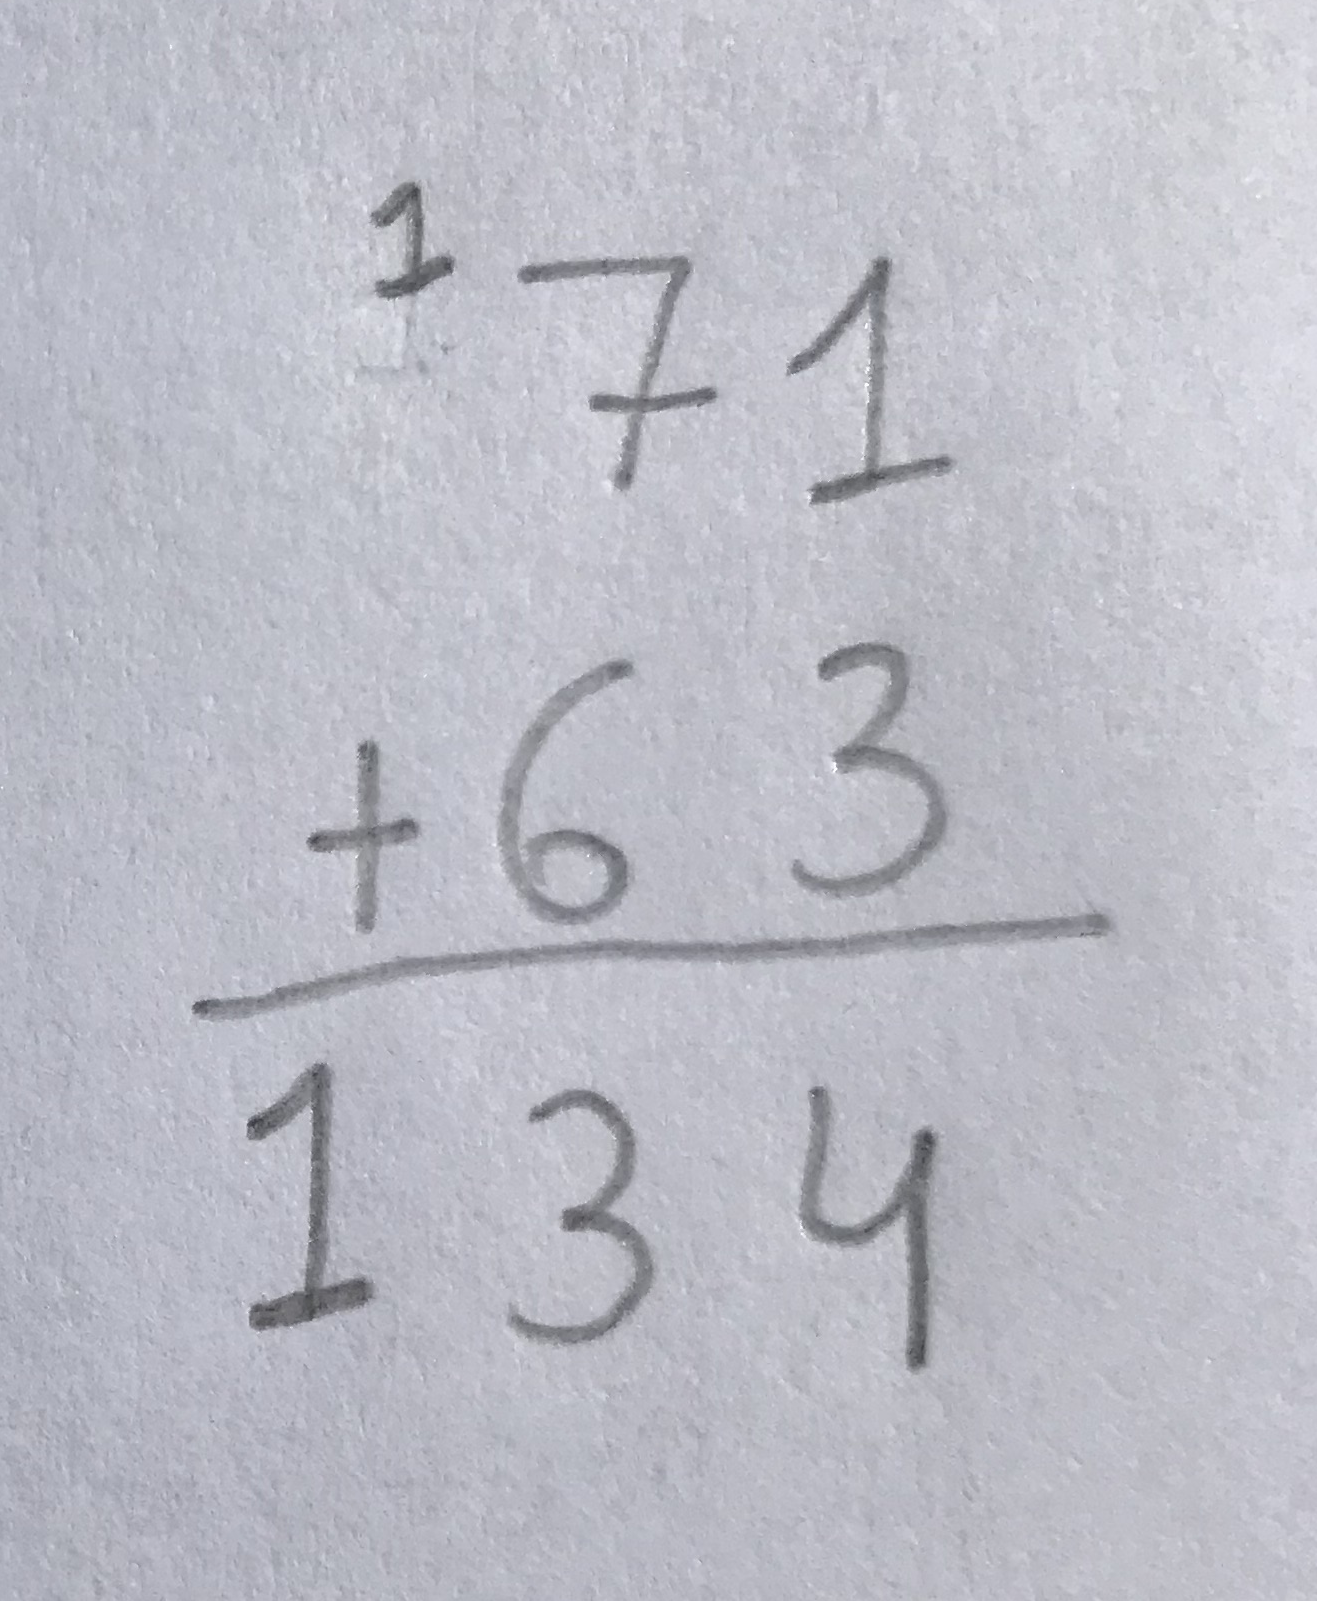 1 71
+63
134